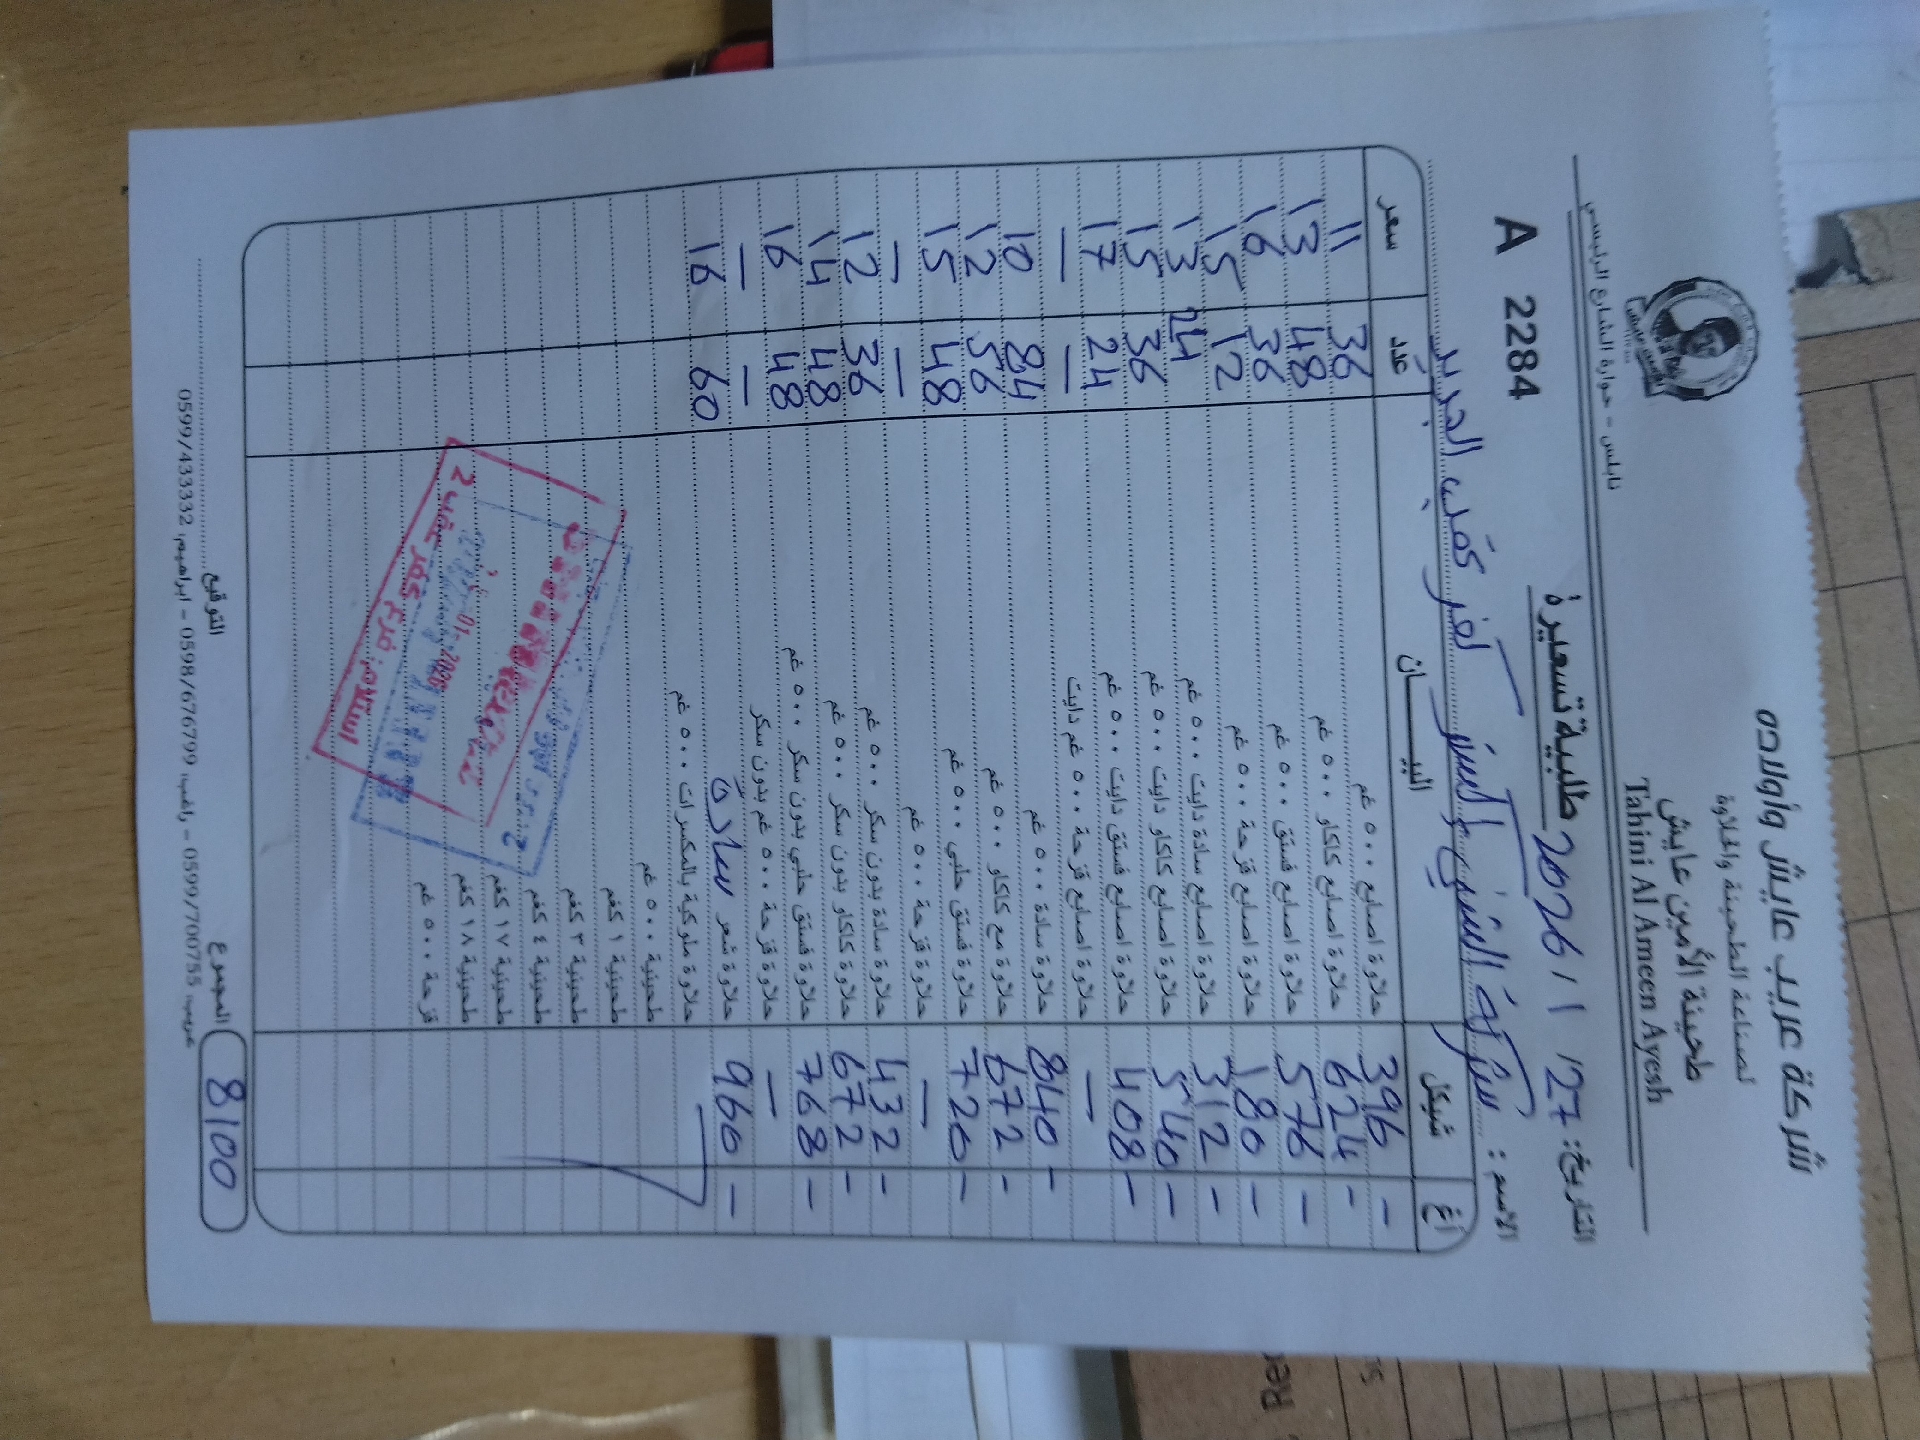 شركة عريب عايش وأولاده
لصناعة الطحينة والحلاوة
طحينة الأمين عايش
Tahini Al Ameen Ayesh
نابلس - حوارة الشارع الرئيسي
A 2284
طلبية تسعيرة
التاريخ: 27 / 1 / 2026
الاسم: شركة الشني
كفر عقب الجديد
سعر عدد البيـــان شيكل أغ
11 36 حلاوة اصابع ٥٠٠ غم 396 -
13 48 حلاوة اصابع كاكاو ٥٠٠ غم 624 -
16 36 حلاوة اصابع فستق ٥٠٠ غم 576 -
15 12 حلاوة اصابع قزحة ٥٠٠ غم 180 -
13 24 حلاوة اصابع سادة دايت ٥٠٠ غم 312 -
15 36 حلاوة اصابع كاكاو دايت ٥٠٠ غم 540 -
17 24 حلاوة اصابع فستق دايت ٥٠٠ غم 408 -
- - حلاوة اصابع قزحة ٥٠٠ غم دايت -
10 84 حلاوة سادة ٥٠٠ غم 840 -
12 56 حلاوة مع كاكاو ٥٠٠ غم 672 -
15 48 حلاوة فستق حلبي ٥٠٠ غم 720 -
- - حلاوة قزحة ٥٠٠ غم -
12 36 حلاوة سادة بدون سكر ٥٠٠ غم 432 -
14 48 حلاوة كاكاو بدون سكر ٥٠٠ غم 672 -
16 48 حلاوة فستق حلبي بدون سكر ٥٠٠ غم 768 -
- - حلاوة قزحة ٥٠٠ غم بدون سكر -
16 60 حلاوة شعر سادة 960 -
حلاوة ملوكية بالمكسرات ٥٠٠ غم
طحينية ٥٠٠ غم
طحينية ١ كغم
طحينية ٣ كغم
طحينية ٤ كغم
طحينية ١٧ كغم
طحينية ١٨ كغم
قزحة ٥٠٠ غم
استلام: فرع كفر عقب 2
المجموع 8100
التوقيع
عريب: 0599/700755 - راغب: 0598/676799 - ابراهيم: 0599/433332